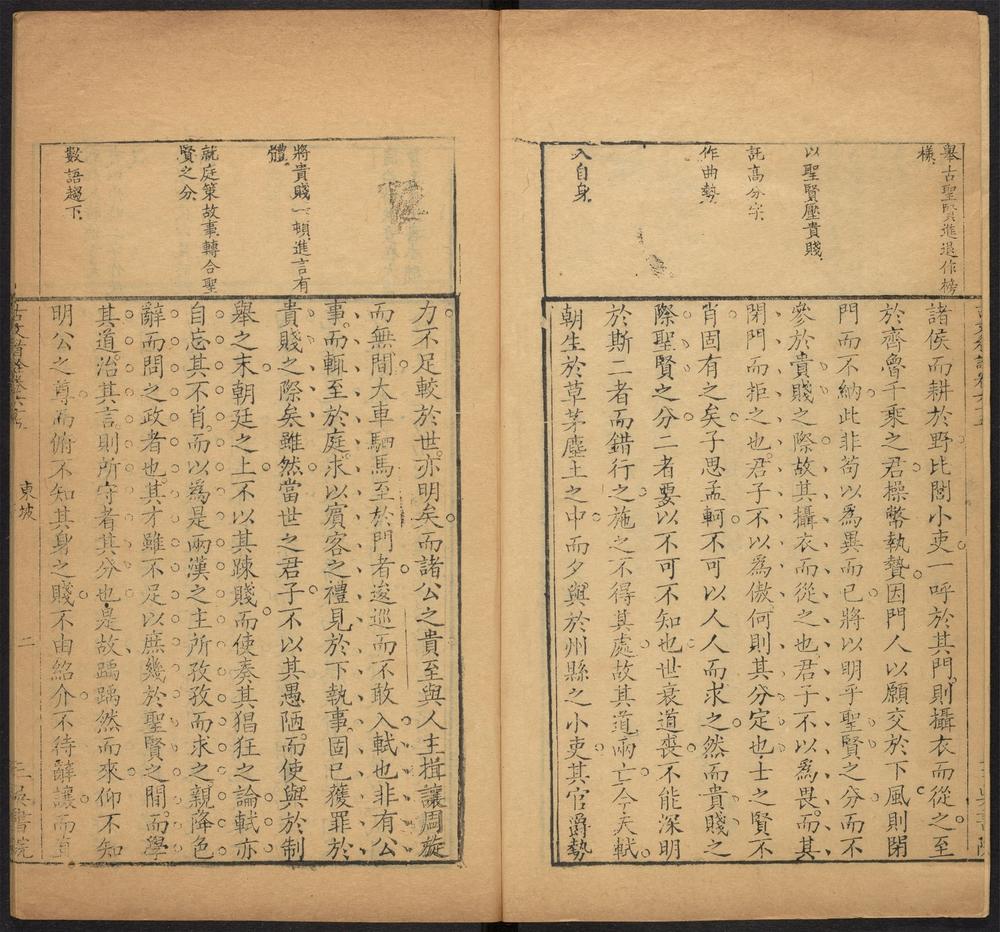 舉古聖賢進退作榜
樣
以聖賢壓貴賤
託高分字
作曲勢
入自身
諸侯而耕於野比閭小吏一呼於其門則攝衣而從之至
於齊魯千乘之君操幣執贄因門人以願交於下風則閉
門而不納此非苟以爲異而已將以明乎聖賢之分而不
參於貴賤之際故其攝衣而從之也君子不以爲畏而其
閉門而拒之也君子不以爲傲何則其分定也士之賢不
肖固有之矣子思孟軻不可以人人而求之然而貴賤之
際聖賢之分二者要以不可不知也世衰道喪不能深明
於斯二者而錯行之施之不得其處故其道兩亡今夫軾
朝生於草茅塵土之中而夕與於州縣之小吏其官爵勢
將貴賤一頓進言有
體
就庭策故事轉合聖
賢之分
數語趨下
力不足較於世亦明矣而諸公之貴至與人主揖讓周旋
而無間大車駟馬至於門者逡巡而不敢入軾也非有公
事而輒至於庭求以賓客之禮見於下執事固已獲罪於
貴賤之際矣雖然當世之君子不以其愚陋而使與於制
舉之末朝廷之上不以其踈賤而使奏其猖狂之論軾亦
自忘其不肖而以爲是兩漢之主所孜孜而求之親降色
辭而問之政者也其才雖不足以庶幾於聖賢之間而學
其道治其言則所守者其分也是故踽踽然而來仰不知
明公之尊而俯不知其身之賤不由紹介不待辭讓而直
東坡
二
三吳書院